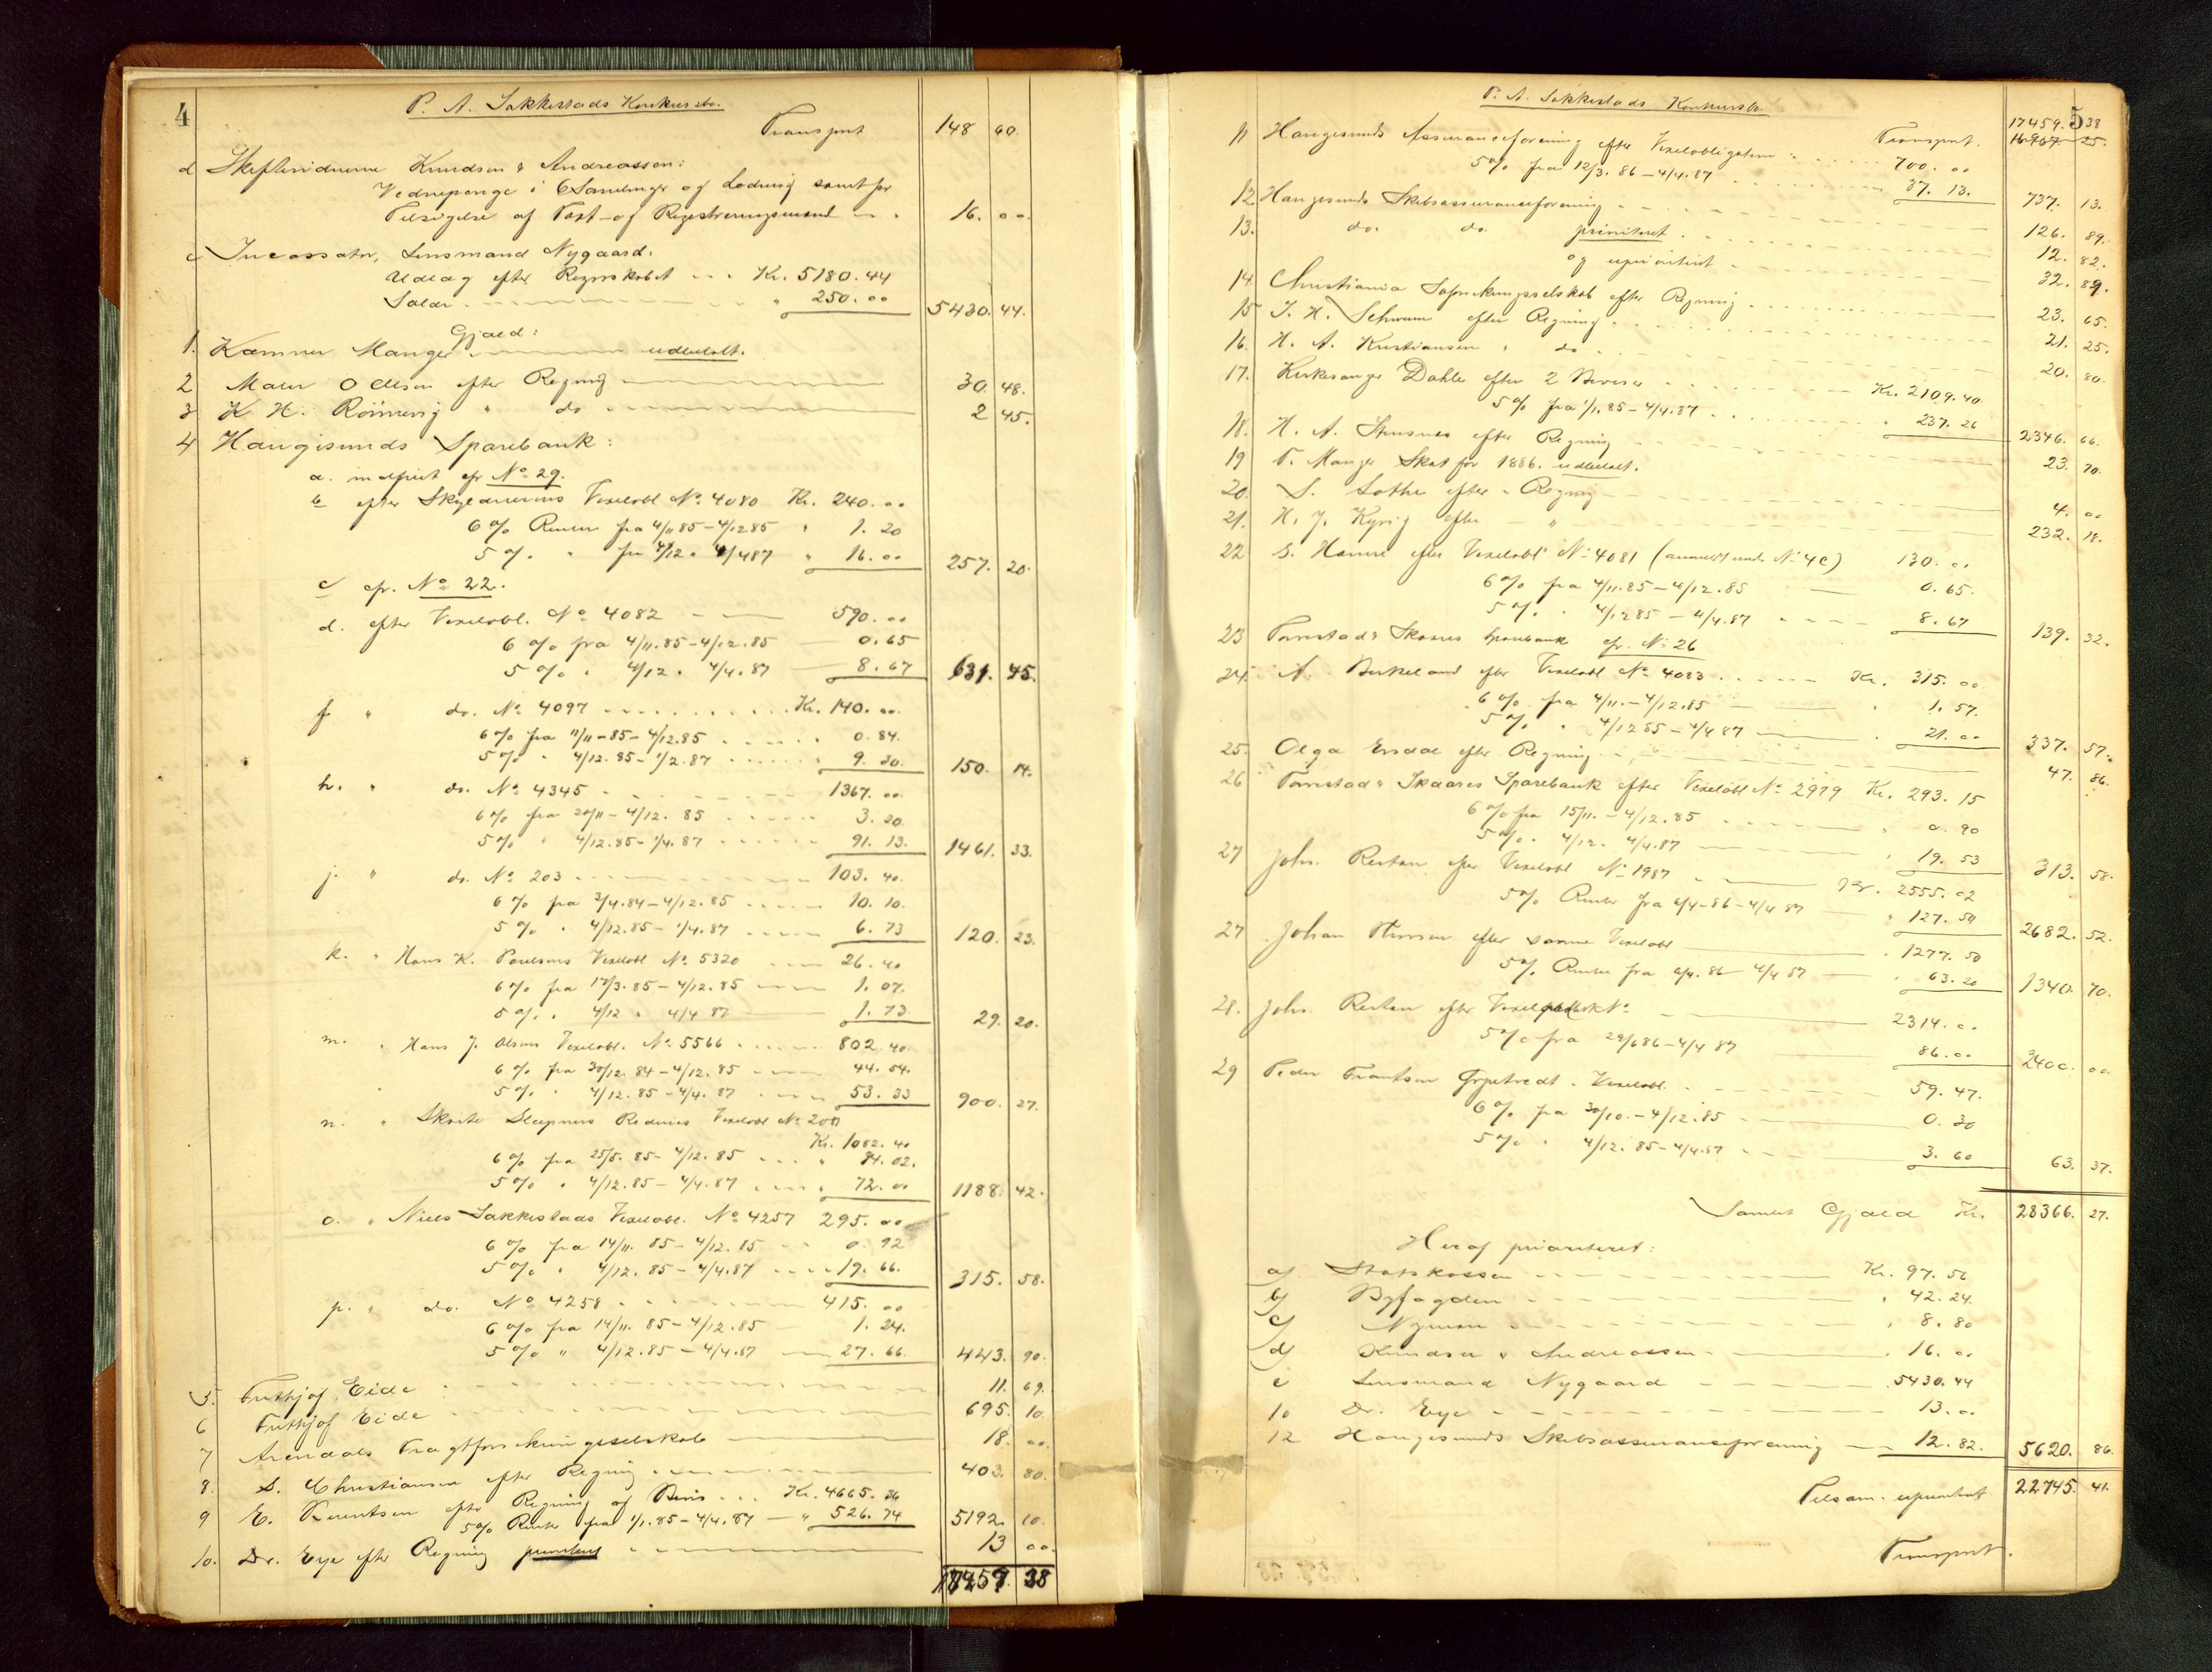 4
P. A. Sakkestads Konkursbo.
Transport 148 60.
d Skifteridnerne Knudsen & Andreassen:
Vidnepenge i 6 Samlinger og Lodning samt for
Tilsigelse af Taxt- og Registreringsmænd 16. 00
e Incassator, Lensmand Nygaard.
Udlæg efter Regnskabet Kr. 5180. 44
Salær 250. 00 5430. 44.
Gjæld:
1. Kæmner Manger udbetalt.
2 Maler Odlsen efter Regning 30. 48.
3 K. H. " do 2 45.
4 Haugesunds Sparebank:
a. indfriet cfr No 29.
b efter Skyldnerens Vexelobl No. 4080 Kr. 240. 00
6 % Renter fra 4/11 85 - 4/12 85 " 1. 20
5 %. " fra 4/12 " 4/4 87 " 16. 00 257. 20
c cfr. No 22.
d. efter Vexelobl. No 4082 590. 00
6 % fra 4/11. 85 - 4/12. 85 0. 65
5 % " 4/12 . 4/4. 87 8. 67 631. 45.
f " do. No 4097 Kr. 140. 00
6 % fra 11/11 - 85 - 4/12. 85 0. 84.
5 % " 4/12. 85 - 1/2. 87 9. 30. 150. 14.
h. " do. No 4345 1367. 00
6 % fra 20/11 - 4/12. 85 3. 20
5 % " 4/12. 85 - 4/4. 87 91. 13. 1461. 33.
j. " do. No 203 103. 40.
6 % fra 3/4. 84 - 4/12. 85 10. 10.
5 %. " 4/12. 85 - 4/4. 87 6. 73 120. 23.
k. " Hans K. Poulsens Vexelobl No. 5320 26. 40
6 % fra 17/3. 85 - 4/12. 85 1. 07.
5 %. " 4/12 " 4/4 87 1. 73 29. 20.
m. " Hans J. Olsens Vexelobl. No 5566 802. 40
6 % fra 30/12. 84 - 4/12. 85 44. 54.
5 % " 4/12. 85 - 4/4. 87 53. 33 900. 27.
n. " Skøite Sleipners Rederies Vexelobl No 200
Kr. 1082. 40
6 % fra 25/5. 85 - 4/12. 85 " 34. 02.
5 % " 4/12. 85 - 4/4. 87 " 72. 00 1188. 42.
o. " Niels Sakkestads Vexelobl. No 4257 295. 00
6 % fra 14/11. 85 - 4/12. 85 0. 92
5 % " 4/12. 85 - 4/4. 87 19. 66. 315. 58.
p. " do. No 4258 415. 00
6 % fra 14/11. 85 - 4/12. 85 1. 24.
5 % " 4/12. 85 - 4/4. 87 27. 66. 443. 90.
5. Frithjof Eide 11. 69.
6 Frithjof Eide 695. 10
7 Arendals Fragtforsikringsselskab 18. 00.
8. S. Christiansen efter Regning 403. 80.
9 E. efter Regning og Bevis Kr. 4665. 36
5 % Renter fra 1/1. 85 - 4/4. 87 " 526. 74 5192. 10.
10. Dr. Eye efter Regning 13 00.
17459. 38
5
P. A. Sakkestads Konkursbo.
Transport. 17459. 38
16967 25.
11 Haugesunds Assuranceforening efter Vexelobligation 700. 00
5 % fra 12/3. 86 - 4/4. 87 37. 13. 737. 13.
12 Haugesunds Skibsassuranceforening 126. 89.
13. do. do. prioriteret 12. 82.
og uprioritert 32. 89.
14. Christiania Selskab efter Regning 23. 65.
15 J. H. efter Regning 21. 25.
16. H. A. Kristiansen " do 20. 80.
17. Kirkesanger Dahle efter 2 Beviser Kr. 2109. 40
5 % fra 1/1. 85 - 4/4. 87 " 237. 26 2346. 66.
18. H. A. Stensnes efter Regning 23. 70.
19 P. Manger Skat for 1886. udbetalt.
20. S. Lothe efter Regning 4. 00
21. H. J. Kyvig efter " 232. 18.
22 S. Hamre efter Vexelobl No 4081 (anmeldt under No 4c) 130. 00
6 % fra 4/11. 85 - 4/12. 85 0. 65.
5 %. " 4/12 85 - 4/4. 87 8. 67 139. 32.
23 Torvestad & Skaares Sparebank cfr. No 26
24. A. Birkeland efter Vexelobl No 4083 Kr. 315. 00
6 % fra 4/11. - 4/12. 85 " 1. 57.
5 % " 4/12 85 - 4/4 87 " 21. 00 337. 57.
25. Olga Ersdal efter Regning 47. 86.
26 Torvestad & Skaares Sparebank efter Vexelobl No 2979 Kr. 293. 15
6 % fra 15/11. - 4/12. 85 " 0. 90
5 %. " 4/12. 4/4. 87 " 19. 53 313. 58.
27 Johs. efter Vexelobl No 1987 Kr. 2555. 02
5 % Renter fra 4/4 - 86 - 4/4 87 " 127. 50 2682. 52.
27 Johan Thorsen efter samme Vexelobl " 1277. 50
5 % Renter fra 4/4. 86 - 4/4 87 " 63. 20 1340. 70.
28. Johs. efter No 2314. 00
5 % fra 29/6 86 - 4/4 87 86. 00 2400. 00
29 Peder Frantsen Vexelobl. 59. 47.
6 % fra 30/10. - 4/12. 85 0. 30
5 % " 4/12. 85 - 4/4. 87 3. 60 63. 37.
Samlet Gjæld Kr. 28366. 27.
Heraf prioriteret:
a) Statskassen Kr. 97. 56
b) Byfogden " 42. 24.
c) Nyman " 8. 80
d) Knudsen & Andreassen " 16. 00
e Lensmand Nygaard . 5430. 44
10 Dr. Eye 13. 00
12 Haugesunds Skibsassuranceforening 12. 82. 5620. 86.
Tilsam. uprioritert 22745. 41.
Transport.